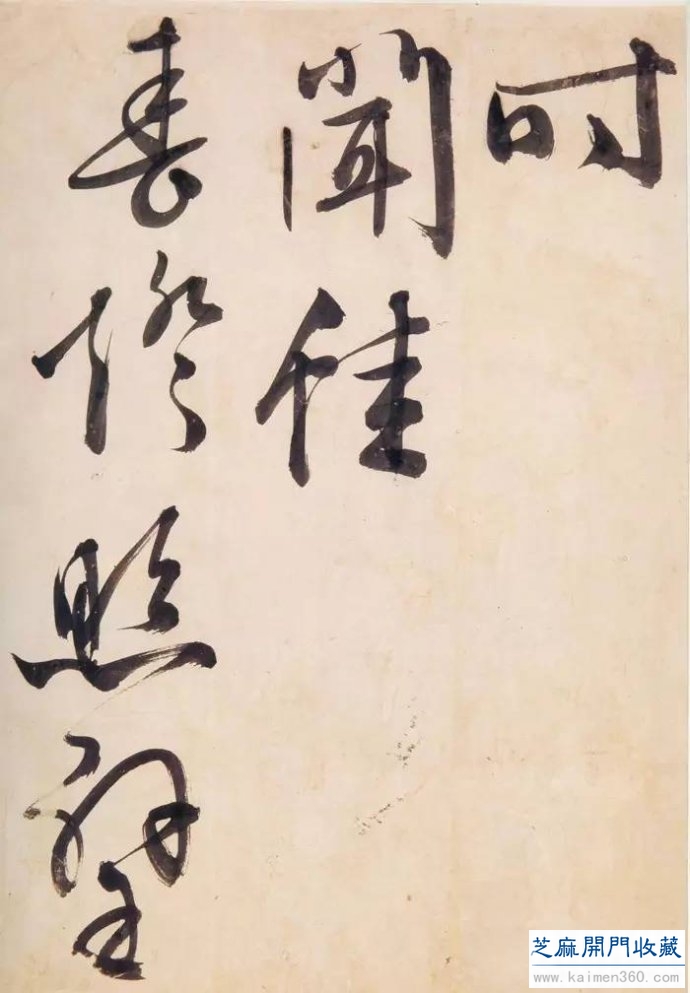 时
聞佳
春照壁
芝麻開門收藏
www.kaimen360.com